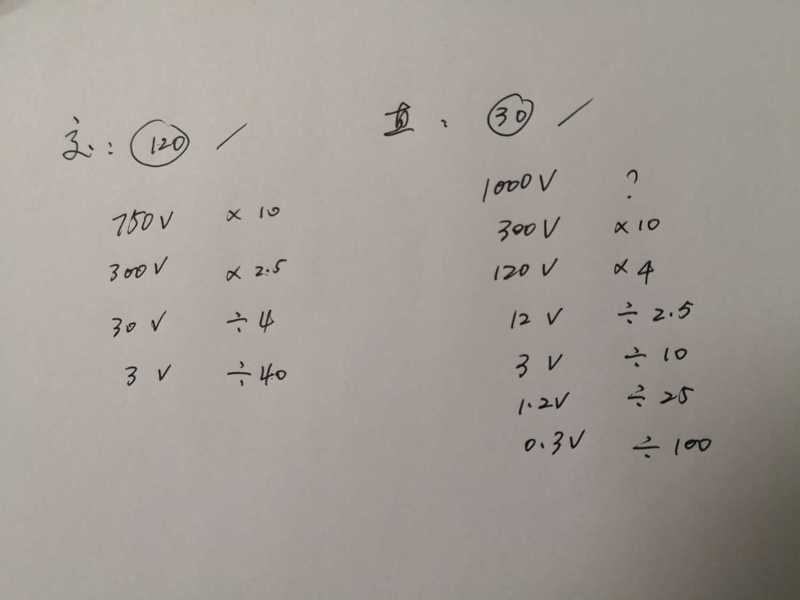 交: 120 /
750V × 10
300V × 2.5
30V ÷ 4
3V ÷ 40
直: 30 /
1000V ?
300V × 10
120V × 4
12V ÷ 2.5
3V ÷ 10
1.2V ÷ 25
0.3V ÷ 100